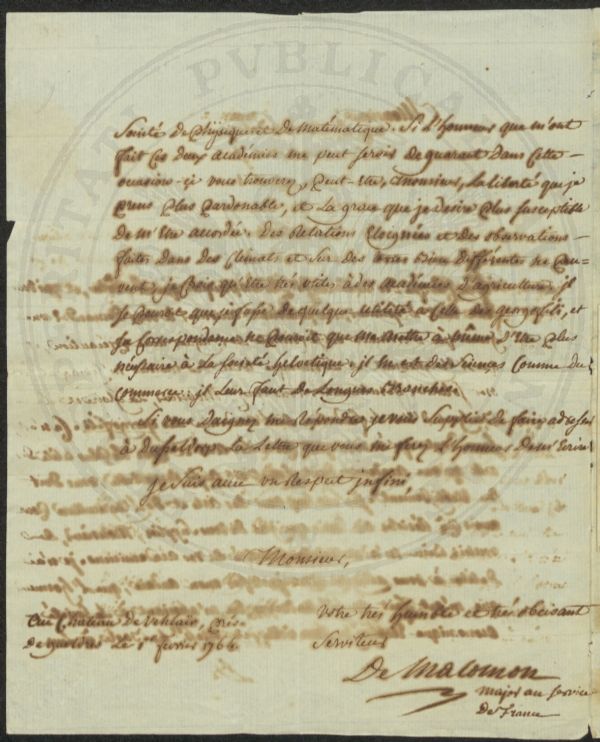 Société de Physique et de Matématique. Si l'honneur que m'ont
fait ces deux académies me peut servir de garant dans cette
occasion-çi vous trouverez, peut-etre, Monsieur, la liberté que je
prens plus pardonable, et la grace que je desire plus susceptible
de m'etre accordée. des Relations Eloignées et des observations
faites dans des Climats et sur des bien différentes ne peu-
vent, je Crois qu'etre très utiles à des académies d'agriculture, il
se pouroit que je fusse de quelque utilité à celle des georgofili, et
sa Correspondance ne pouroit que me mettre à même d'etre plus
nécessaire à la Société helvetique. il en est des siences comme du
commerce: il leur faut de longues Branches.
Si vous daignez me Répondre, je vous supplie de faire adresser
à la Lettre que vous me ferez l'honneur de m'Ecrire
je suis avec un Respect infini,
Monsieur,
Votre très humble et très obeissant
Serviteur
au Chateau de près
de gueldres le 1er fevrier 1766.
De Malomon
major au service
de France
PUBLICA